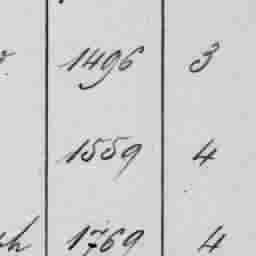 1496 3
1559 4
1769 4